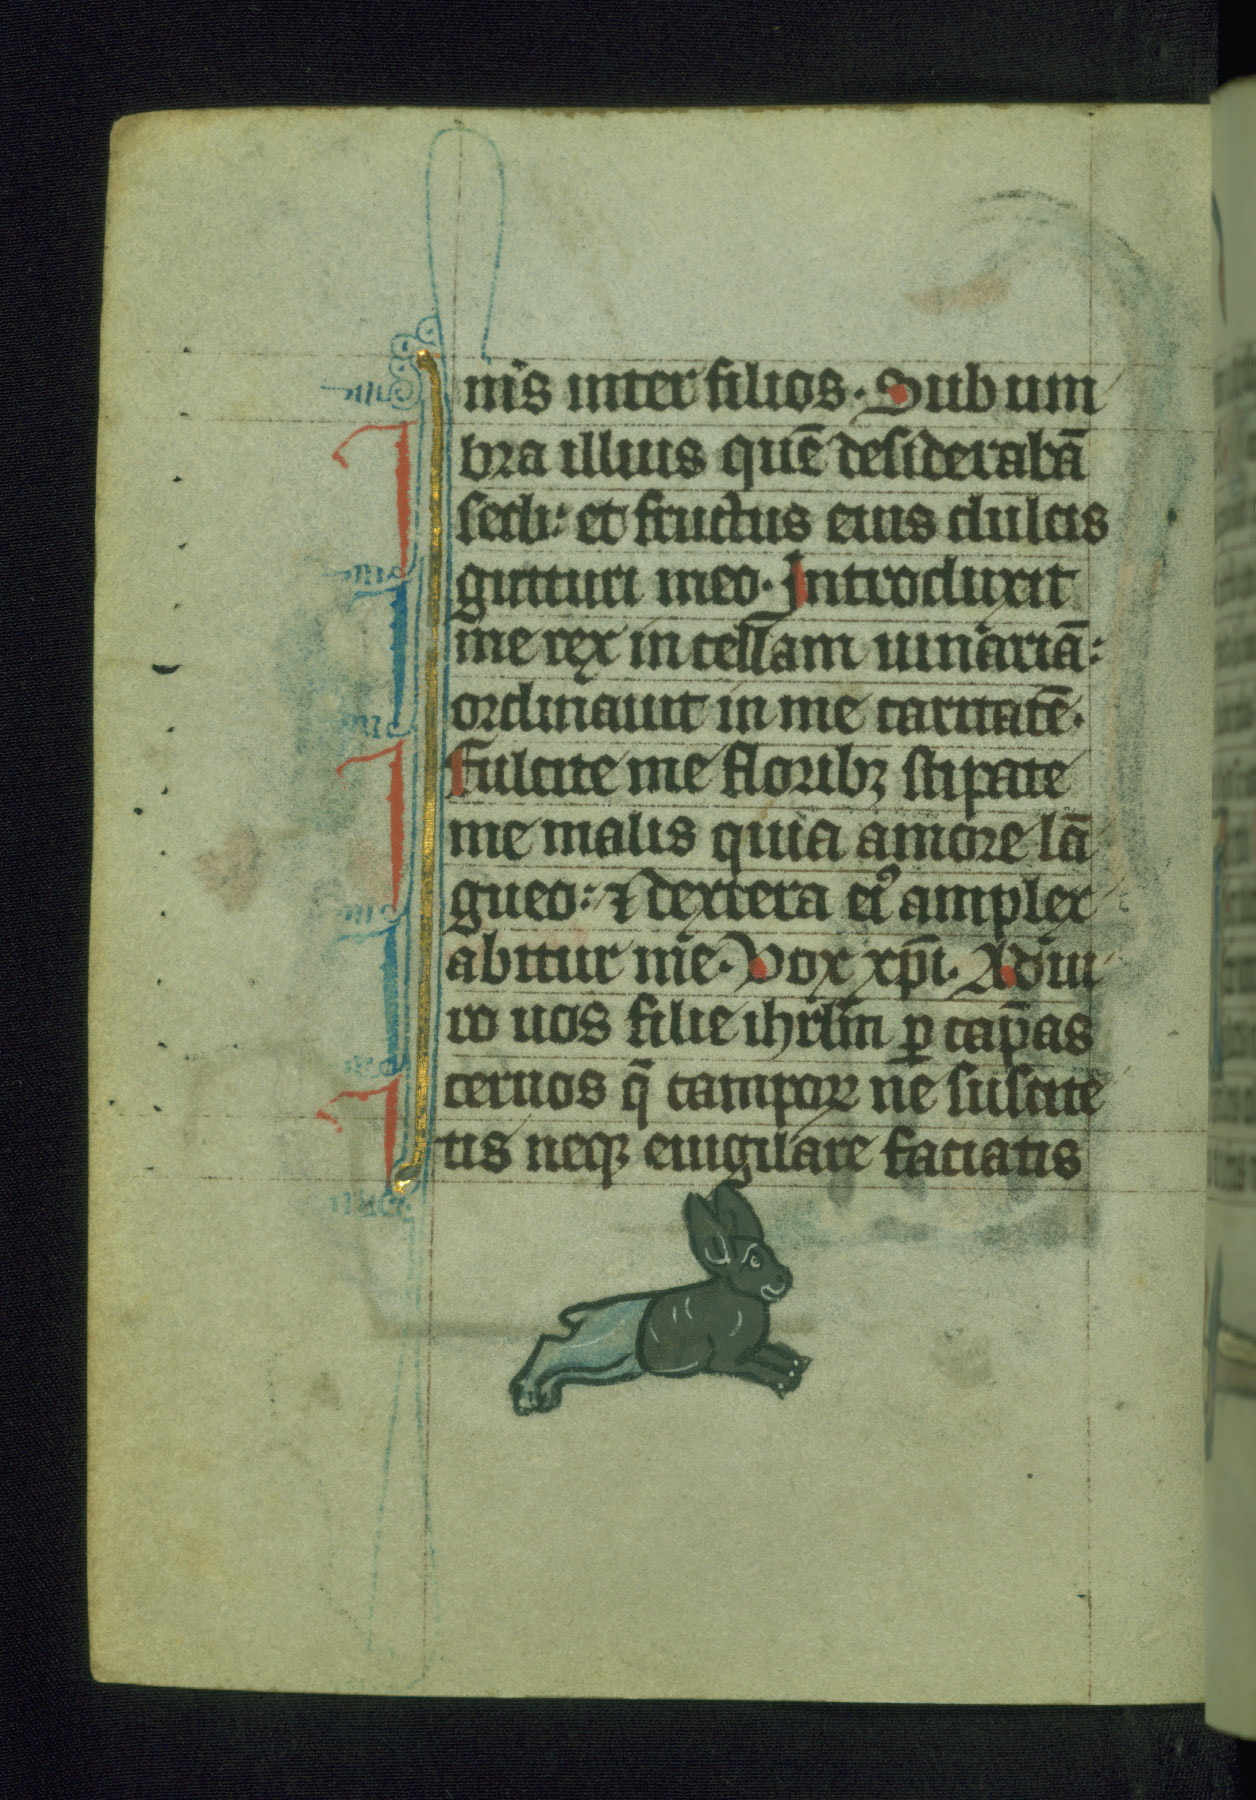 m̄s inter filios. Sub um
bra illius quē desiderabā
sedi: et fructus eius dulcis
gutturi meo. Introduxit
me rex in cellam uinariā:
ordinauit in me caritatē.
Fulcite me floribꝫ stipate
me malis quia amore lā
gueo: ⁊ dextera eiꝰ amplex
abitur me. Vox xp̄i. Adiu
ro uos filie ihrlm̄ ꝑ cap̄as
ceruos q̄ camporꝝ ne suscite
tis neqꝫ euigilare faciatis